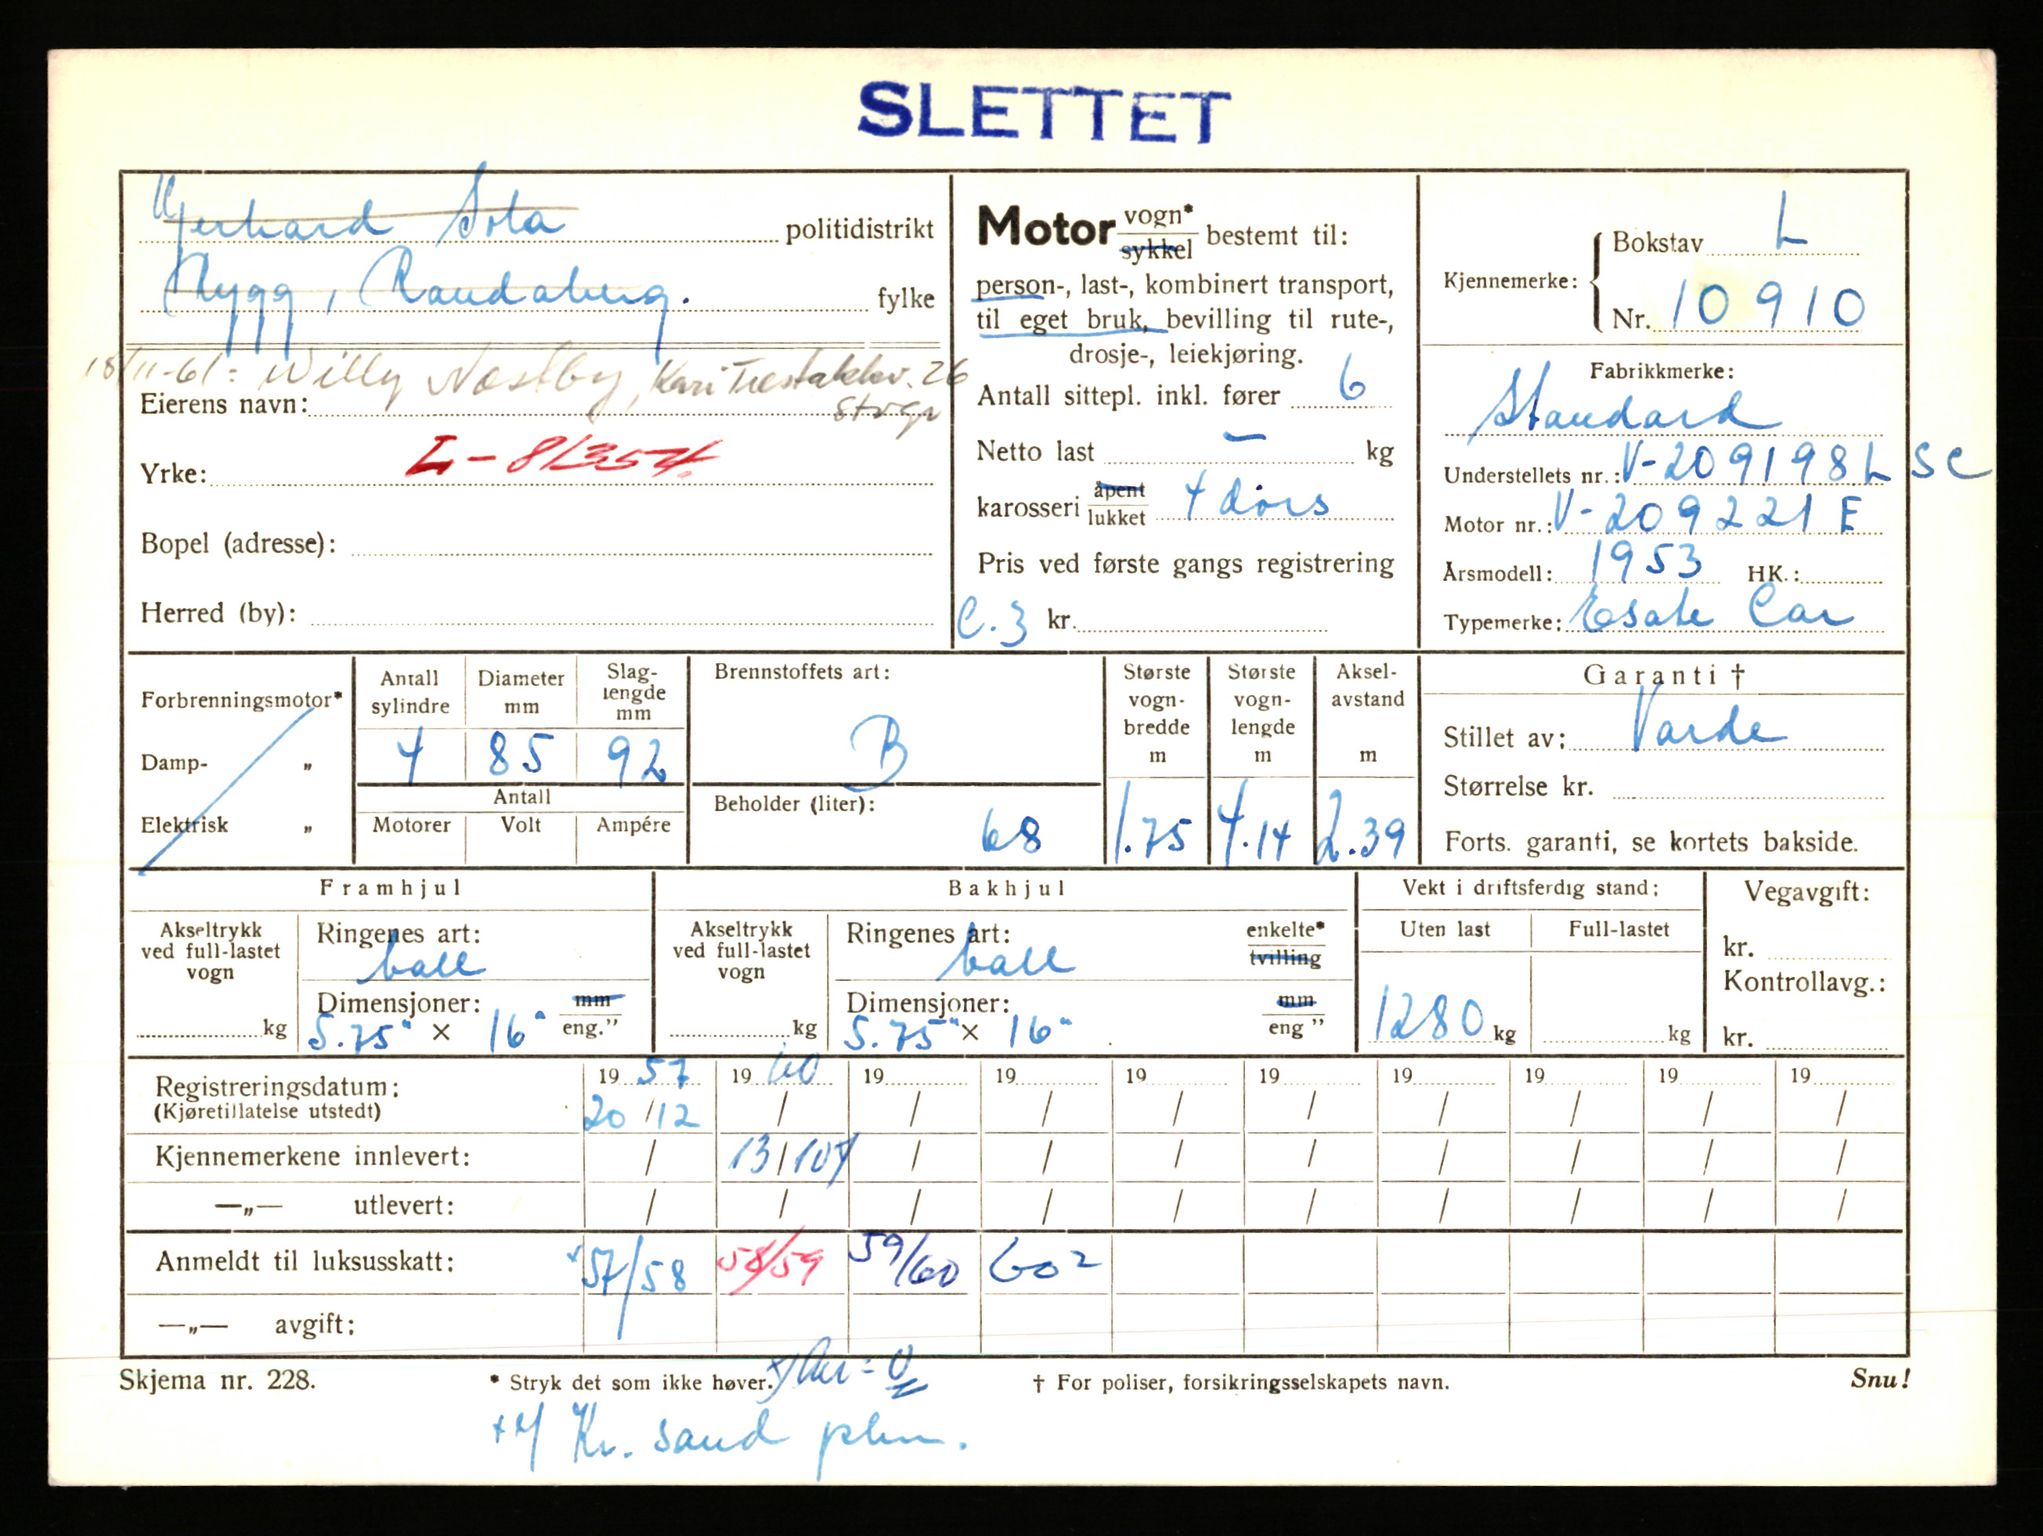 SLETTET
Gerhard Sola politidistrikt
Nygg, Randaberg. fylke
18/11-61: Willy Næstby, Kari Trestakkv. 26
Stvgr
Eierens navn:
L-81354
Yrke:
Bopel (adresse):
Herred (by):
Motor vogn* sykkel bestemt til:
person-, last-, kombinert transport,
til eget bruk, bevilling til rute-,
drosje-, leiekjøring.
Antall sittepl. inkl. fører 6
Netto last — kg
karosseri åpent lukket 4 dørs
Pris ved første gangs registrering
C.3 kr.
Kjennemerke: Bokstav L
Nr. 10910
Fabrikkmerke:
Standard
Understellets nr.: V-209198L SC
Motor nr.: V-209221 E
Årsmodell: 1953 HK.:
Typemerke: Esate Car
Forbrenningsmotor*
Damp- „
Elektrisk „
Antall sylindre
Diameter mm
Slag-lengde mm
4 85 92
Antall
Motorer Volt Ampére
Brennstoffets art:
B
Beholder (liter):
68
Største vogn-bredde m
1.75
Største vogn-lengde m
4.14
Aksel-avstand m
2.39
Garanti †
Stillet av: Varde
Størrelse kr.
Forts. garanti, se kortets bakside.
Framhjul
Akseltrykk ved full-lastet vogn
kg
Ringenes art:
ball
Dimensjoner: mm
5.75" × 16" eng."
Bakhjul
Akseltrykk ved full-lastet vogn
kg
Ringenes art: enkelte*
ball tvilling
Dimensjoner: mm
5.75" × 16" eng "
Vekt i driftsferdig stand:
Uten last Full-lastet
1280 kg kg
Vegavgift:
kr.
Kontrollavg.:
kr.
Registreringsdatum: 19 57 19 60 19 19 19 19 19 19 19 19
(Kjøretillatelse utstedt) 20/12 / / / / / / / / /
Kjennemerkene innlevert: / 13/10 / / / / / / / /
—„— utlevert: / / / / / / / / / /
Anmeldt til luksusskatt: 57/58 58/59 59/60 60 2
—„— avgift:
Skjema nr. 228. * Stryk det som ikke høver. † For poliser, forsikringsselskapets navn. Snu!
Kr. sand